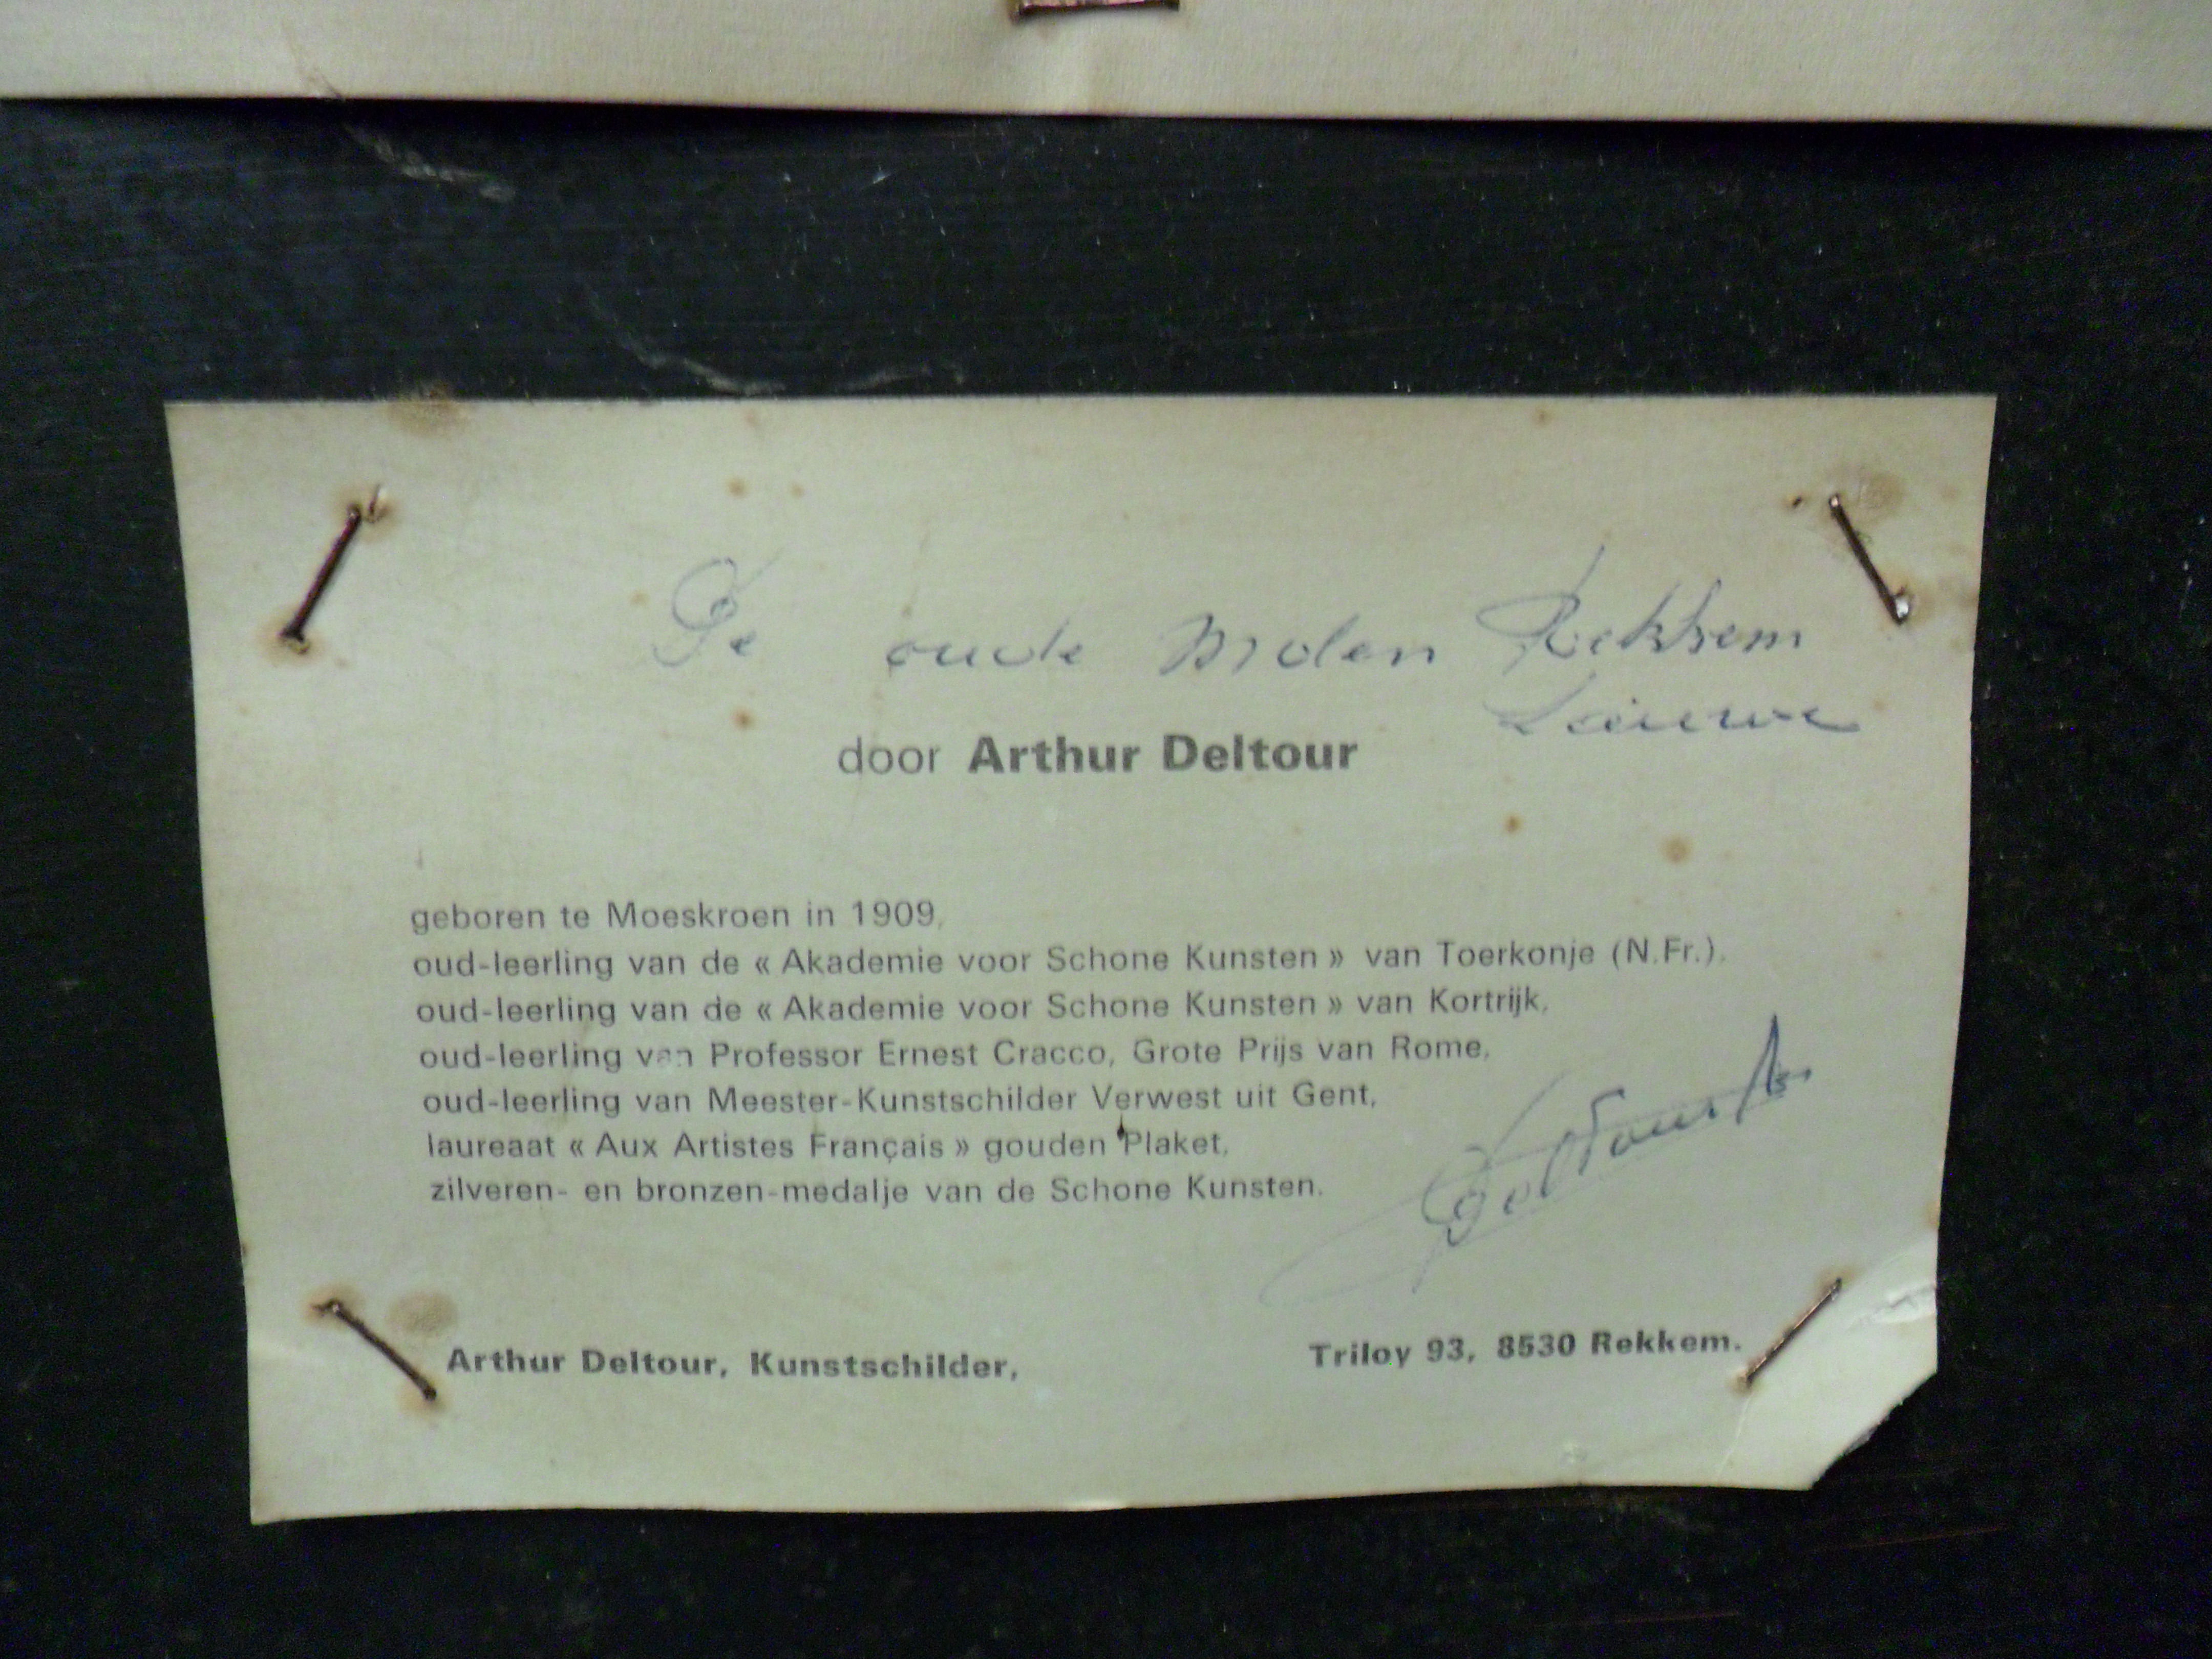 De oude Molen Rekkem
Lauwe
door Arthur Deltour
geboren te Moeskroen in 1909,
oud-leerling van de « Akademie voor Schone Kunsten » van Toerkonje (N.Fr.),
oud-leerling van de « Akademie voor Schone Kunsten » van Kortrijk,
oud-leerling van Professor Ernest Cracco, Grote Prijs van Rome,
oud-leerling van Meester-Kunstschilder Verwest uit Gent,
laureaat « Aux Artistes Français » gouden Plaket,
zilveren- en bronzen-medalje van de Schone Kunsten.
Deltour A.
Arthur Deltour, Kunstschilder,
Triloy 93, 8530 Rekkem.